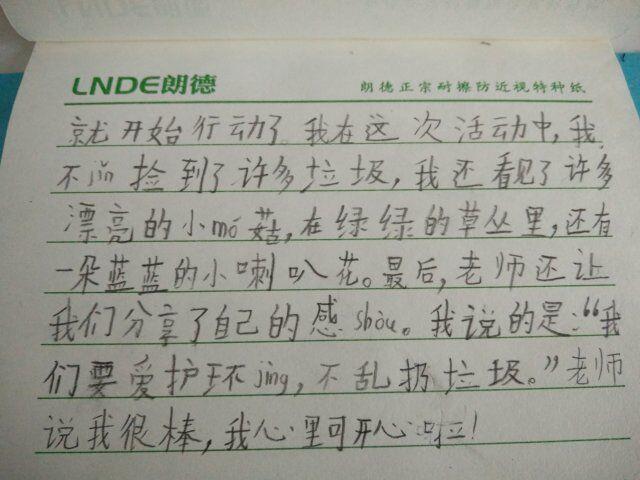 LNDE朗德 朗德正宗耐擦防近视特种纸
就开始行动了。我在这次活动中,我
不jǐn捡到了许多垃圾,我还看见了许多
漂亮的小mó菇,在绿绿的草丛里,还有
一朵蓝蓝的小喇叭花。最后,老师还让
我们分享了自己的感shòu。我说的是:“我
们要爱护环jìng,不乱扔垃圾。”老师
说我很棒,我心里可开心啦!